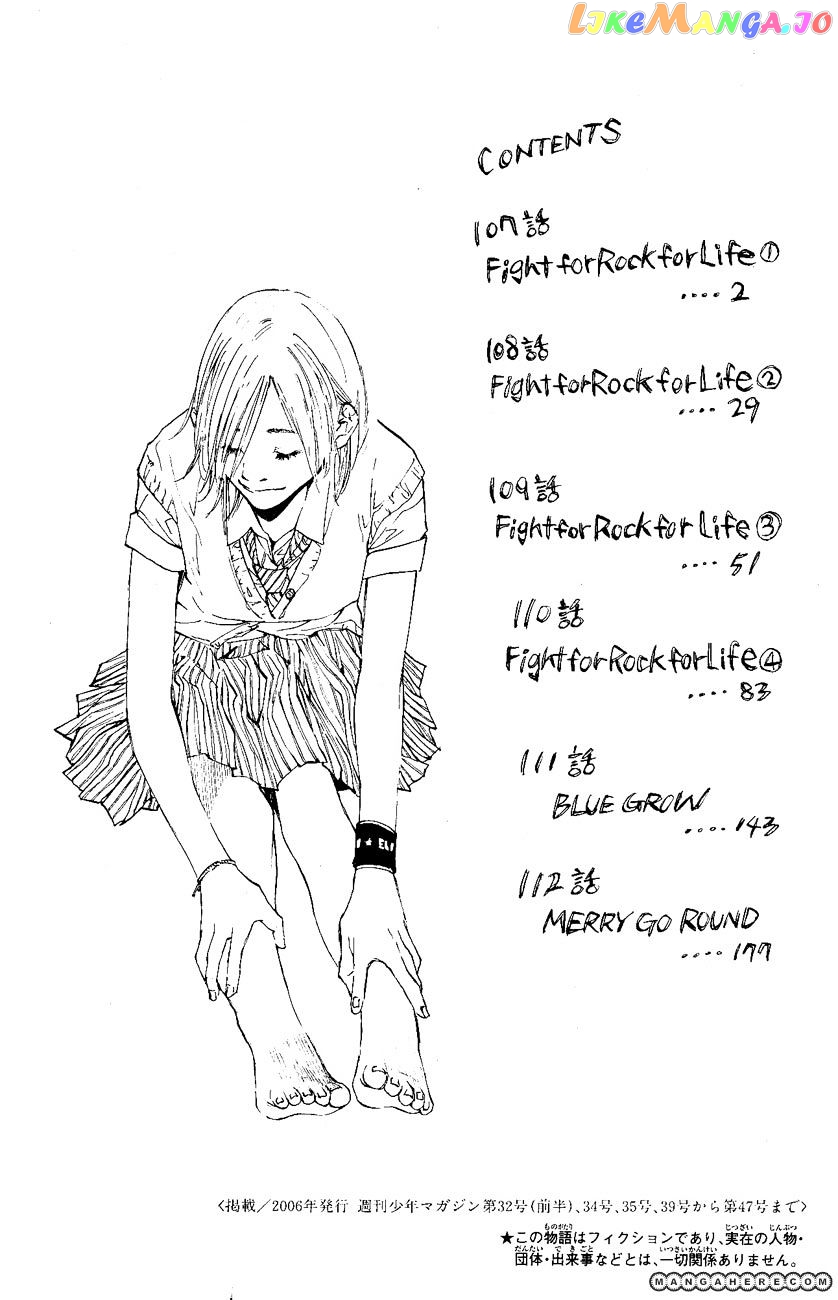 LIKEMANGA.IO
CONTENTS
107話
Fight for Rock for Life①
‥‥2
108話
Fight for Rock for Life②
‥‥29
109話
Fight for Rock for Life③
‥‥51
110話
Fight for Rock for Life④
‥‥83
111話
BLUE GROW
‥‥143
112話
MERRY GO ROUND
‥‥177
★ EL
〈掲載／2006年発行 週刊少年マガジン第32号(前半)、34号、35号、39号から第47号まで〉
★この物語はフィクションであり、実在の人物・
団体・出来事などとは、一切関係ありません。
MANGAHERE.COM